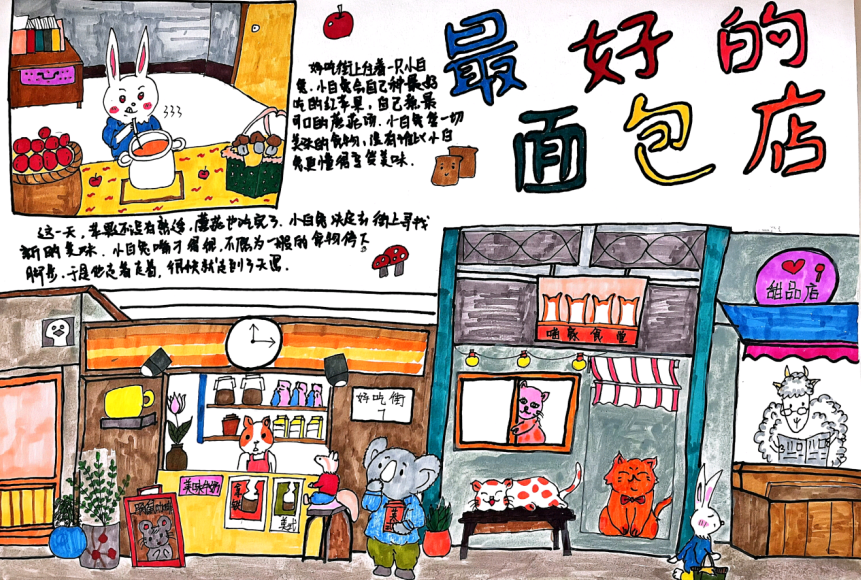 最好的
面包店
好吃街上住着一只小白
兔,小白兔会自己种最好
吃的红苹果,自己栽最
可口的蘑菇,小白兔爱一切
美味的食物,没有谁比小白
兔更懂得享受美味.
这一天,苹果还没有熟,蘑菇也吃完了.小白兔决定去街上寻找
新的美味.小白兔嘴才很挑,不愿为一般的食物停下
脚步.于是他走着走着,很快就走到了天黑.
食堂
甜品店
好吃街
7
美味
美式